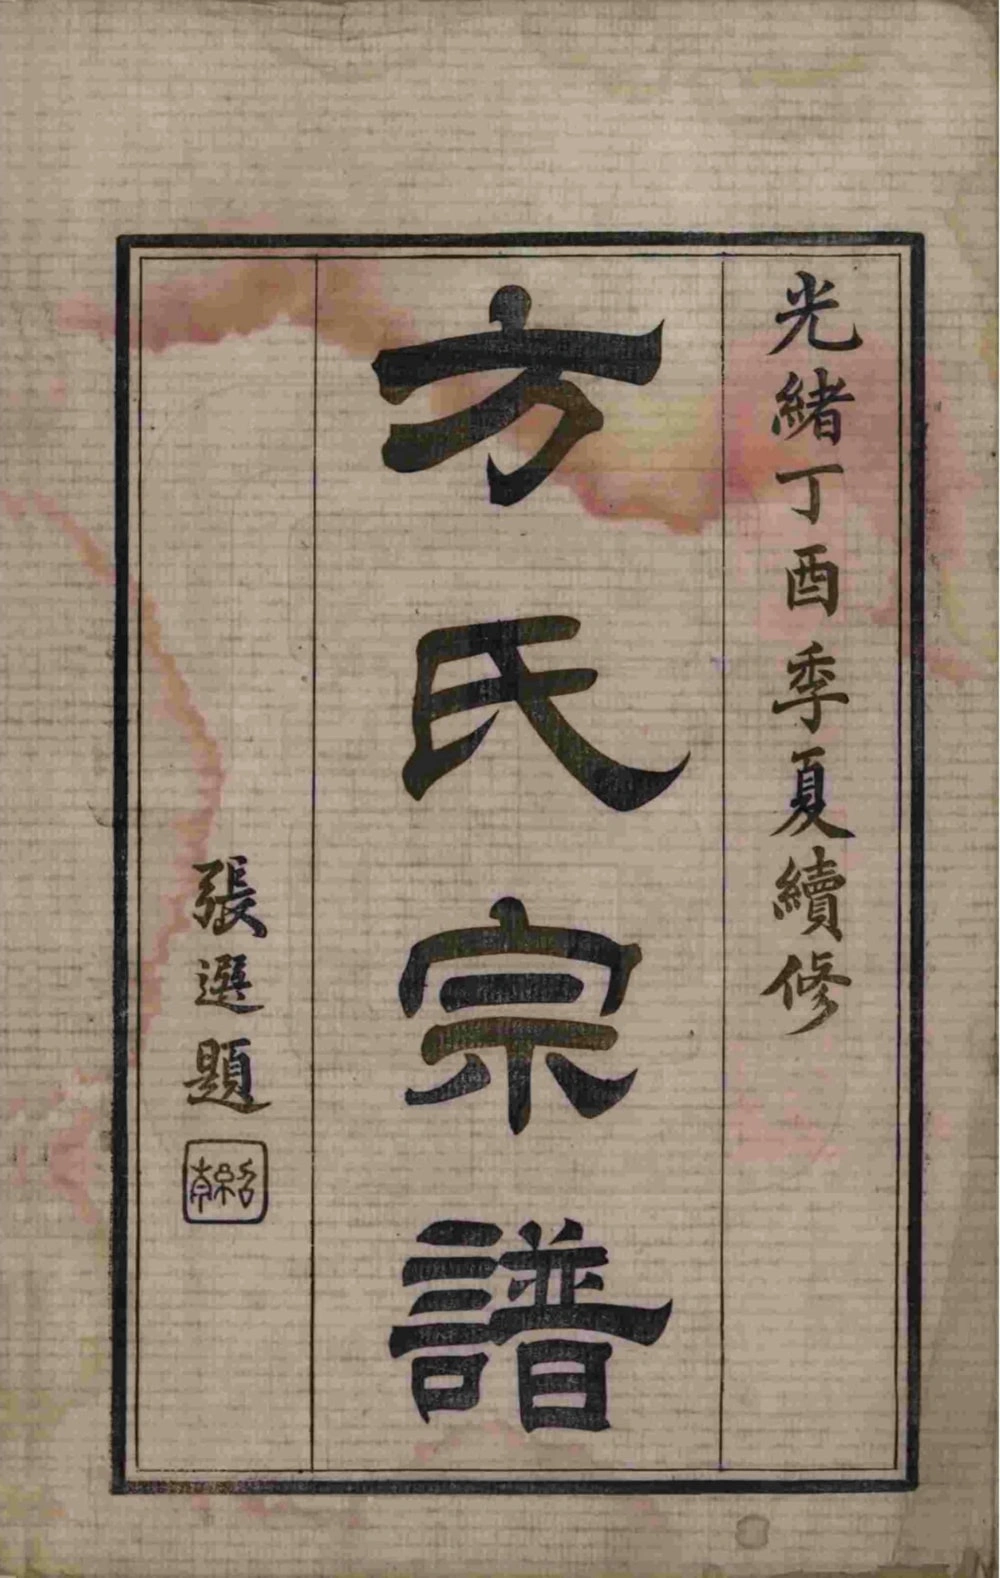 光緒丁酉季夏續修
方氏宗譜
張選題